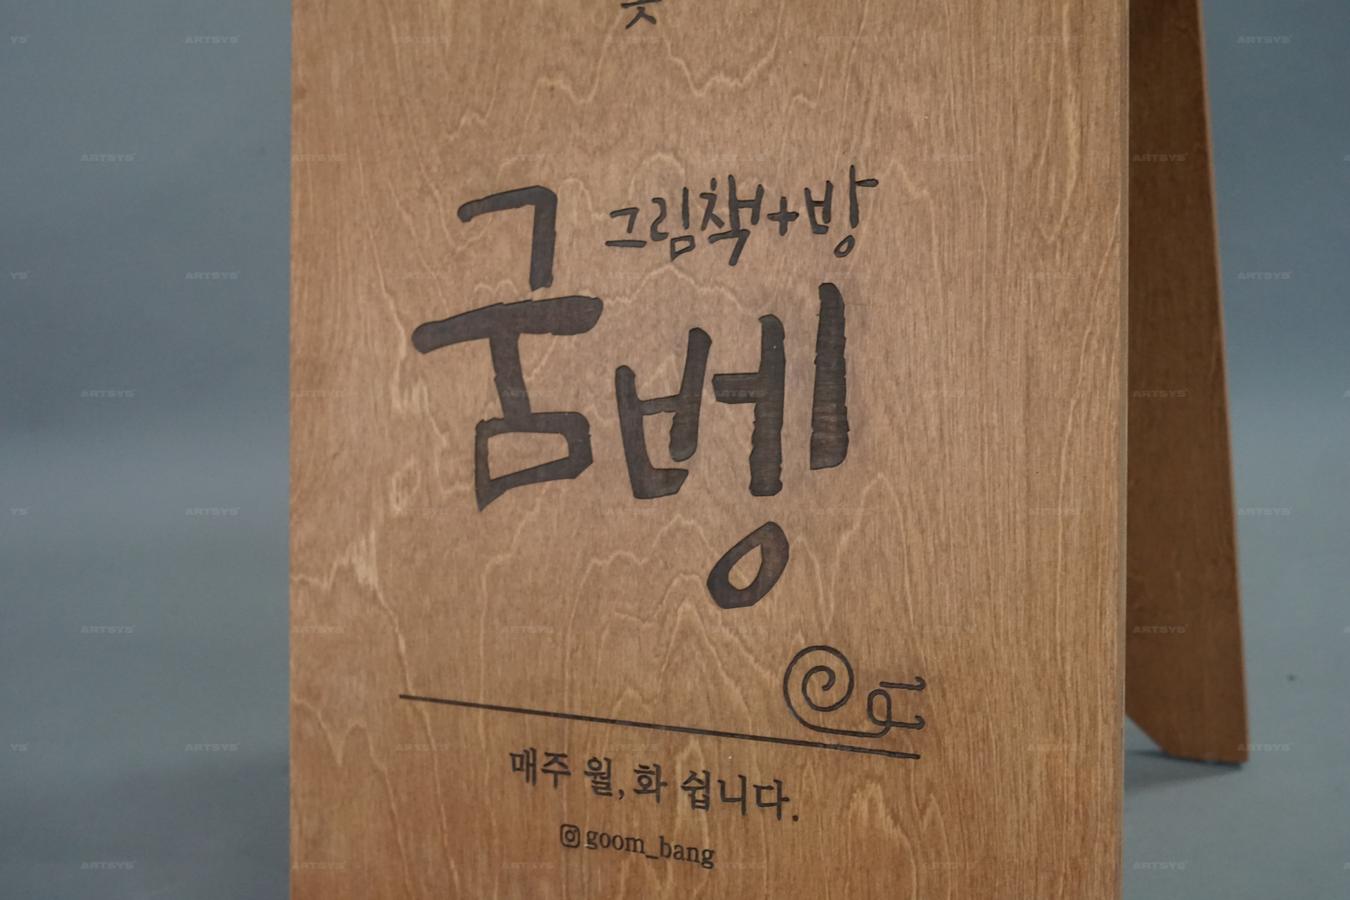 그림책+방
굼벵
매주 월,화 쉽니다.
goom_bang
ARTSYS